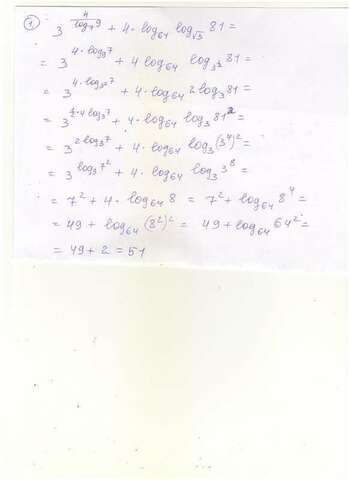 ① 3^(4/log₇9) + 4·log₆₄ log_√3 81 =
= 3^(4·log₉7) + 4 log₆₄ log_(3^(1/2)) 81 =
= 3^(4·log_(3²)7) + 4·log₆₄ 2 log₃81 =
= 3^(½·4 log₃7) + 4·log₆₄ log₃81² =
= 3^(2·log₃7) + 4·log₆₄ log₃(3⁴)² =
= 3^(log₃7²) + 4·log₆₄ log₃3⁸ =
= 7² + 4·log₆₄8 = 7² + log₆₄8⁴ =
= 49 + log₆₄(8²)² = 49 + log₆₄64² =
= 49 + 2 = 51